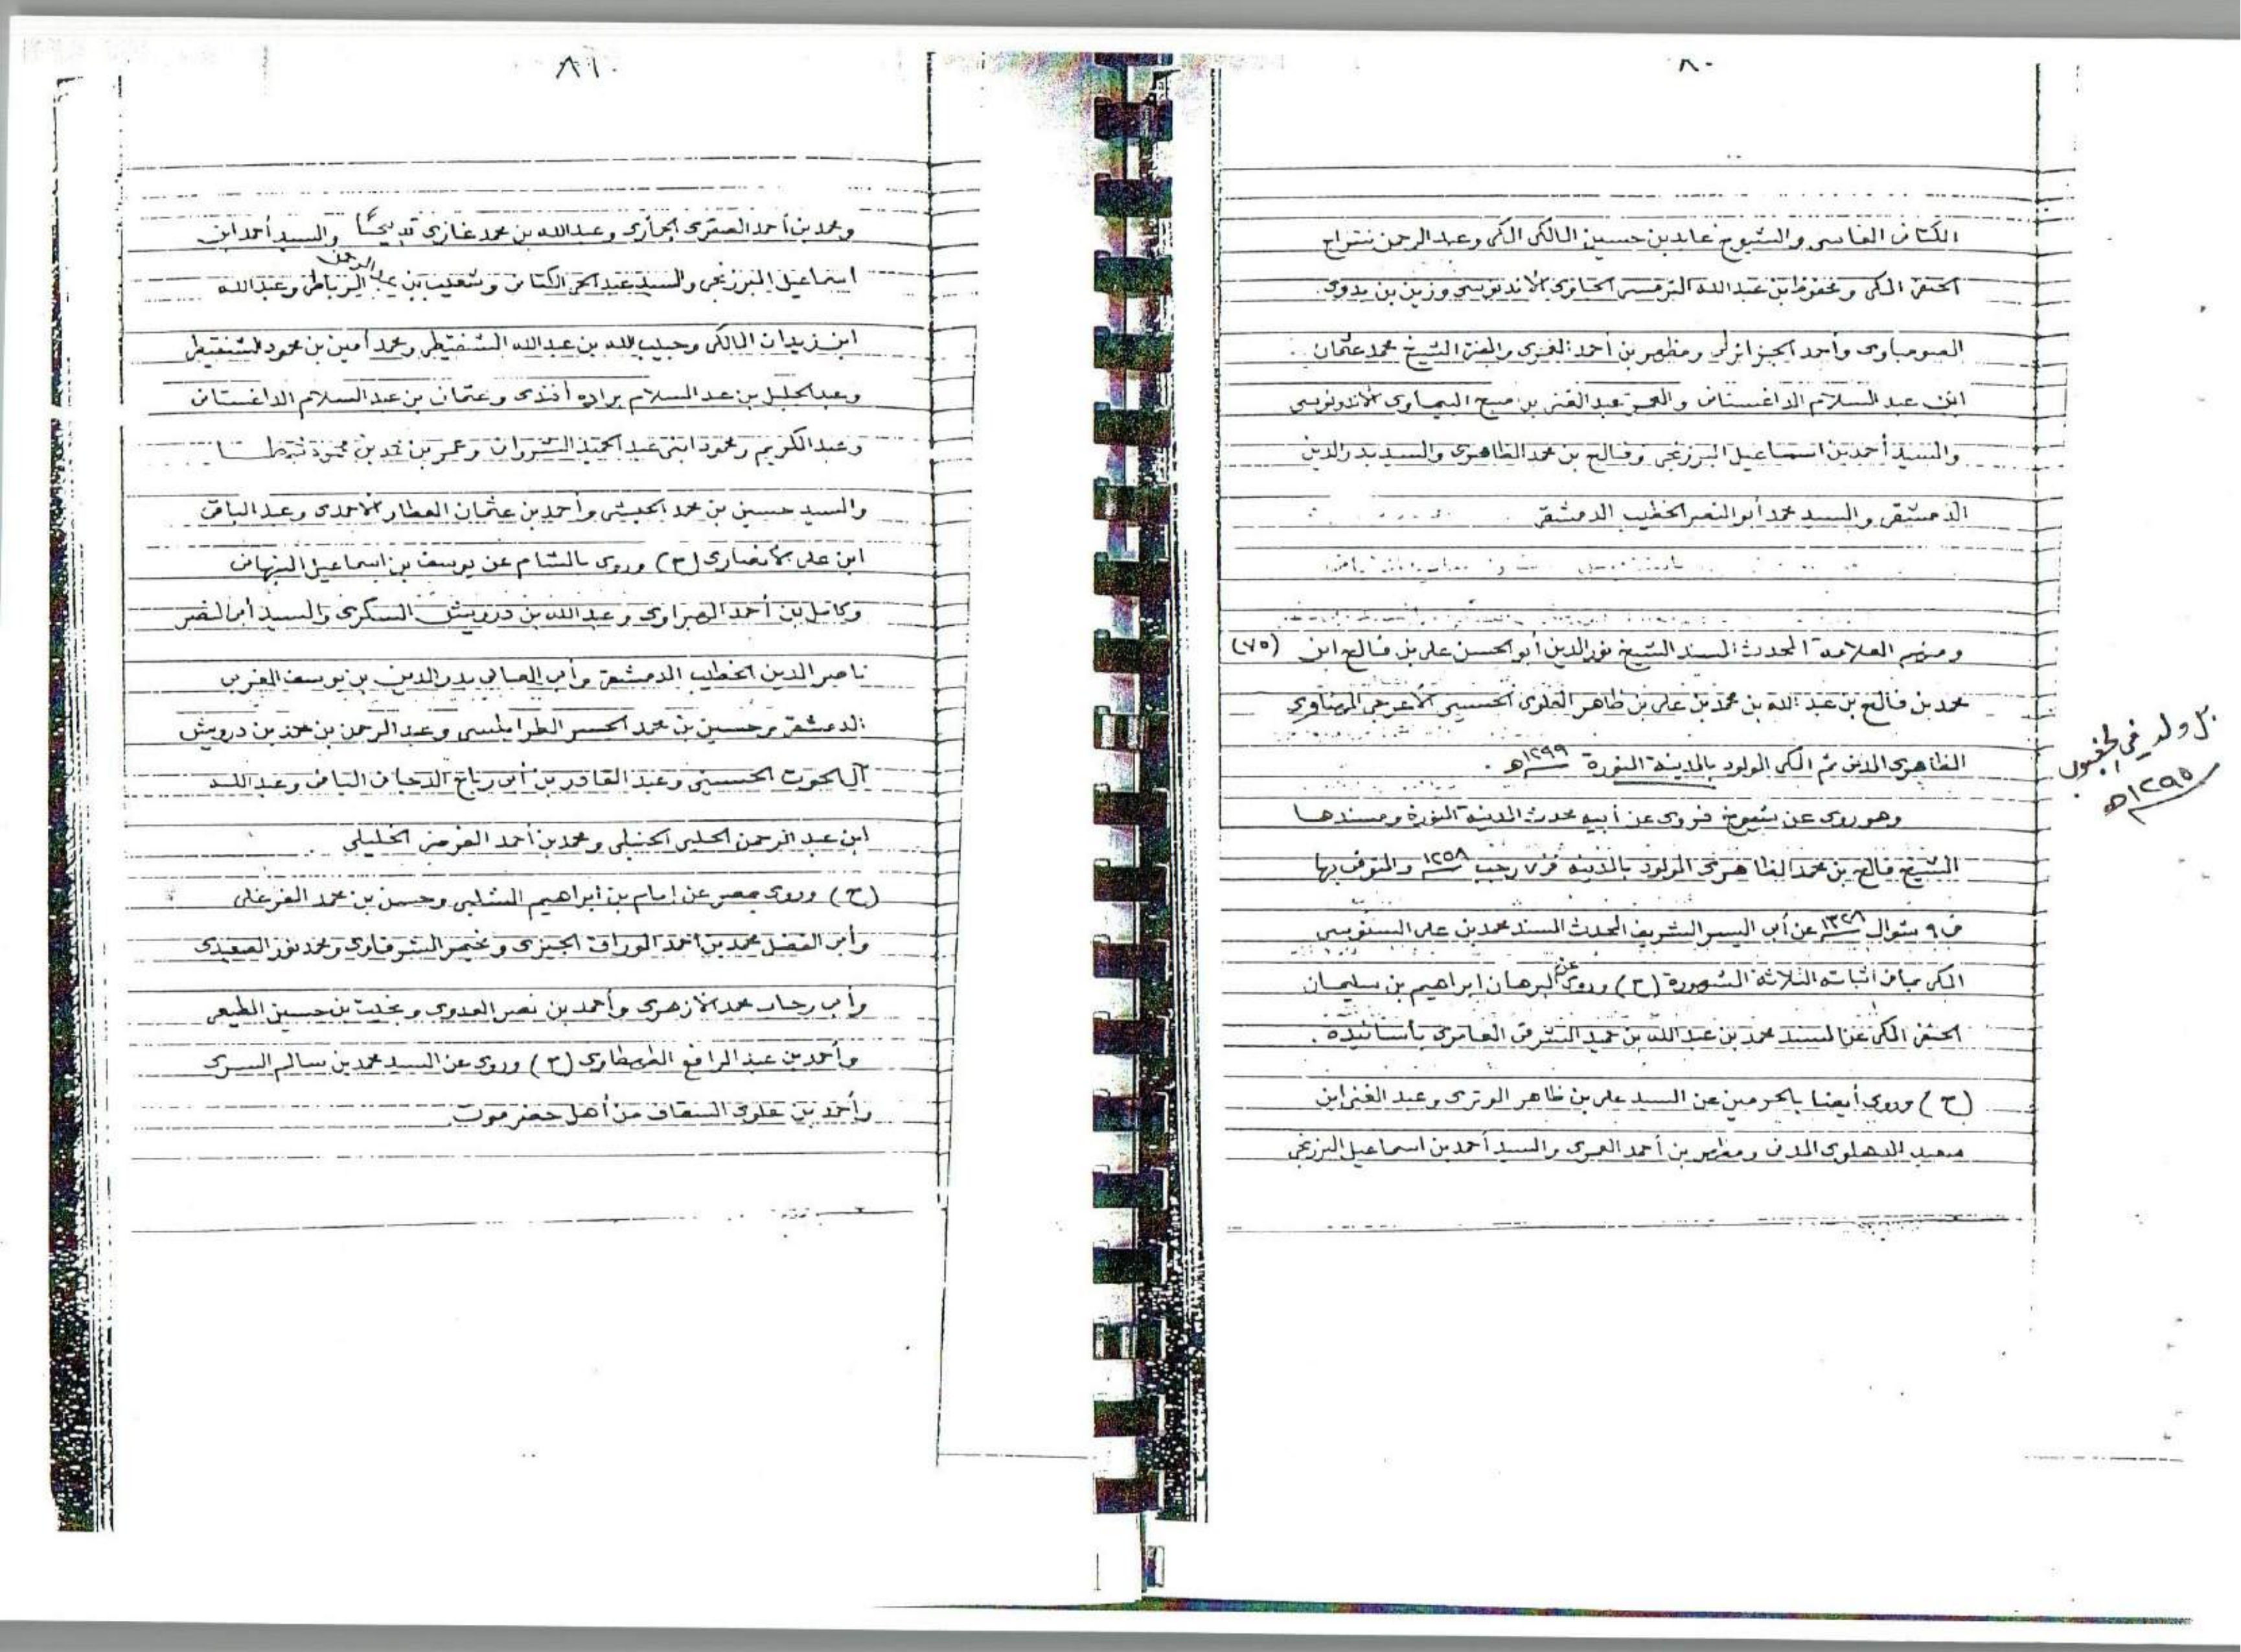 ٨٠
الكتانى الفاسى والشيوخ عابد بن حسين المالكى المكى وعبد الرحمن سراج
الحنفى المكى ومحفوظ ابن عبد الله الترمسى الجاوى الاندونوسى وزين بن بدوى
الصومباوى وأحمد الجزائرلى ومظهر بن أحمد العمرى والمفتى الشيخ محمد عثمان
ابن عبد السلام الداغستانى والمعمر عبد الغنى بن صبح البيماوى الأندونوسى
والسيد أحمد بن اسماعيل البرزنجى وفالح بن محمد الظاهرى والسيد بدر الدين
الدمشقى والسيد محمد أبو النصر الخطيب الدمشقى
ومنهم العلامة المحدث المسند الشيخ نور الدين أبو الحسن على بن فالح ابن (٧٥)
محمد بن فالح بن عبد الله بن محمد بن على بن ظاهر العلوى الحسينى الأعرجى المهناوى
الظاهرى المدنى ثم المكى المولود بالمدينة المنورة ١٢٩٩هـ .
بل ولد في الجغبوب
١٢٩٥هـ
وهو روى عن شيوخ فروى عن أبيه محدث المدينة المنورة ومسندها
الشيخ فالح بن محمد الظاهرى المولود بالمدينة فى ٧ رجب ١٢٥٨ والمتوفى بها
فى ٩ شوال ١٣٢٨ عن أبى اليسر الشريف المحدث المسند محمد بن على السنوسى
المكى بما فى أثباته الثلاثة المشهورة (ح) وروى عن البرهان ابراهيم بن سليمان
الحنفى المكى عن المسند محمد بن عبد الله بن حميد الشرقى العامرى بأسانيده .
(ح) وروى أيضا بالحرمين عن السيد على بن ظاهر الوترى وعبد الغنى ابن
سعيد الدهلوى المدنى ومظهر بن أحمد العمرى والسيد أحمد بن اسماعيل البرزنجى
٨١
ومحمد بن أحمد العقرى الجمازى وعبد الله بن محمد غازى تدبجا والسيد أحمد ابن
اسماعيل البرزنجى والسيد عبد الحى الكتانى وشعيب بن عبد الرحمن الرباطى وعبد الله
ابن زيدان المالكى وحبيب الله بن عبد الله الشنقيطى ومحمد أمين بن محمود الشنقيطى
وعبد الجليل بن عبد السلام براده أفندى وعثمان بن عبد السلام الداغستانى
وعبد الكريم ومحمود ابنى عبد الحميد الشروانى وعمر بن محمد بن محمود شطا
والسيد حسين بن محمد الحبشى وأحمد بن عثمان العطار الأحمدى وعبد الباقى
ابن على الأنصارى (ح) وروى بالشام عن يوسف بن اسماعيل النبهانى
وكامل بن أحمد الهبراوى وعبد الله بن درويش السكرى والسيد أبى النصر
ناصر الدين الخطيب الدمشقى وأبى المعالى بدر الدين بن يوسف المغربى
الدمشقى وحسين بن محمد الجسر الطرابلسى وعبد الرحمن بن محمد بن درويش
آل الحوت الحسينى وعبد القادر بن أبى رباح الدجانى اليافى وعبد الله
ابن عبد الرحمن الحلبى الحنبلى ومحمد بن أحمد الخليلى
(ح) وروى بمصر عن إمام بن ابراهيم الشلبى وحسن بن محمد الفرغلى
وأبى الفضل محمد بن أحمد الوراق الجيزى وخضر الشرقاوى ومحمد نور الصعيدى
وأبى رجاء محمد الأزهرى وأحمد بن نصر العدوى وبخيت بن حسين المطيعى
وأحمد بن عبد الرافع الطهطاوى (ح) وروى عن السيد محمد بن سالم السرى
وأحمد بن علوى السقاف من أهل حضرموت